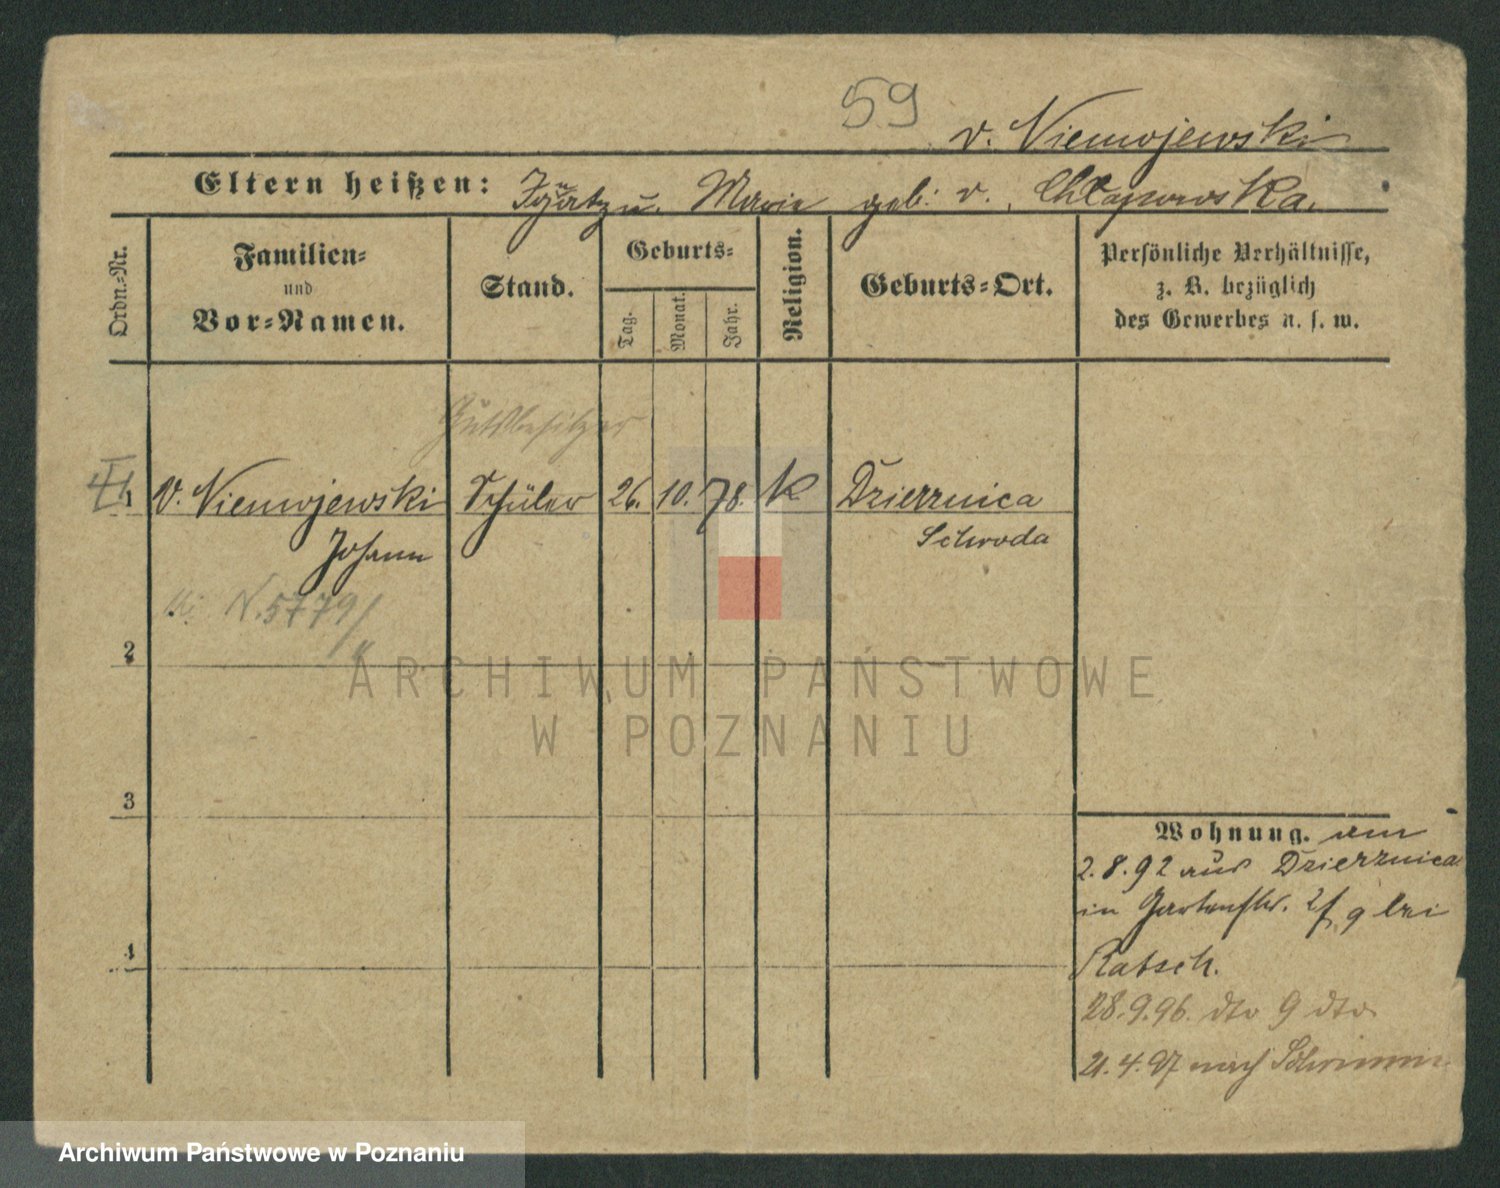 59
v. Niemojewski
Eltern heißen: Ignatz u. Marie geb. v. Chłapowska.
Ordn.-Nr.
Familien-
und
Vor-Namen.
Stand.
Geburts-
Tag.
Monat.
Jahr.
Religion.
Geburts-Ort.
Persönliche Verhältnisse,
z. B. bezüglich
des Gewerbes u. s. w.
Gutsbesitzer
1 v. Niemojewski Schüler 26. 10. 78. K Dzierznica
Johann Schroda
N. 5779/
2
3
4
Wohnung. am
2.8.92 aus Dzierznica
in Gartenstr. 9 bei
Ratsch.
28.9.96. dto 9 dto
21.4.97 nach Schrimm
ARCHIWUM PAŃSTWOWE
W POZNANIU
Archiwum Państwowe w Poznaniu